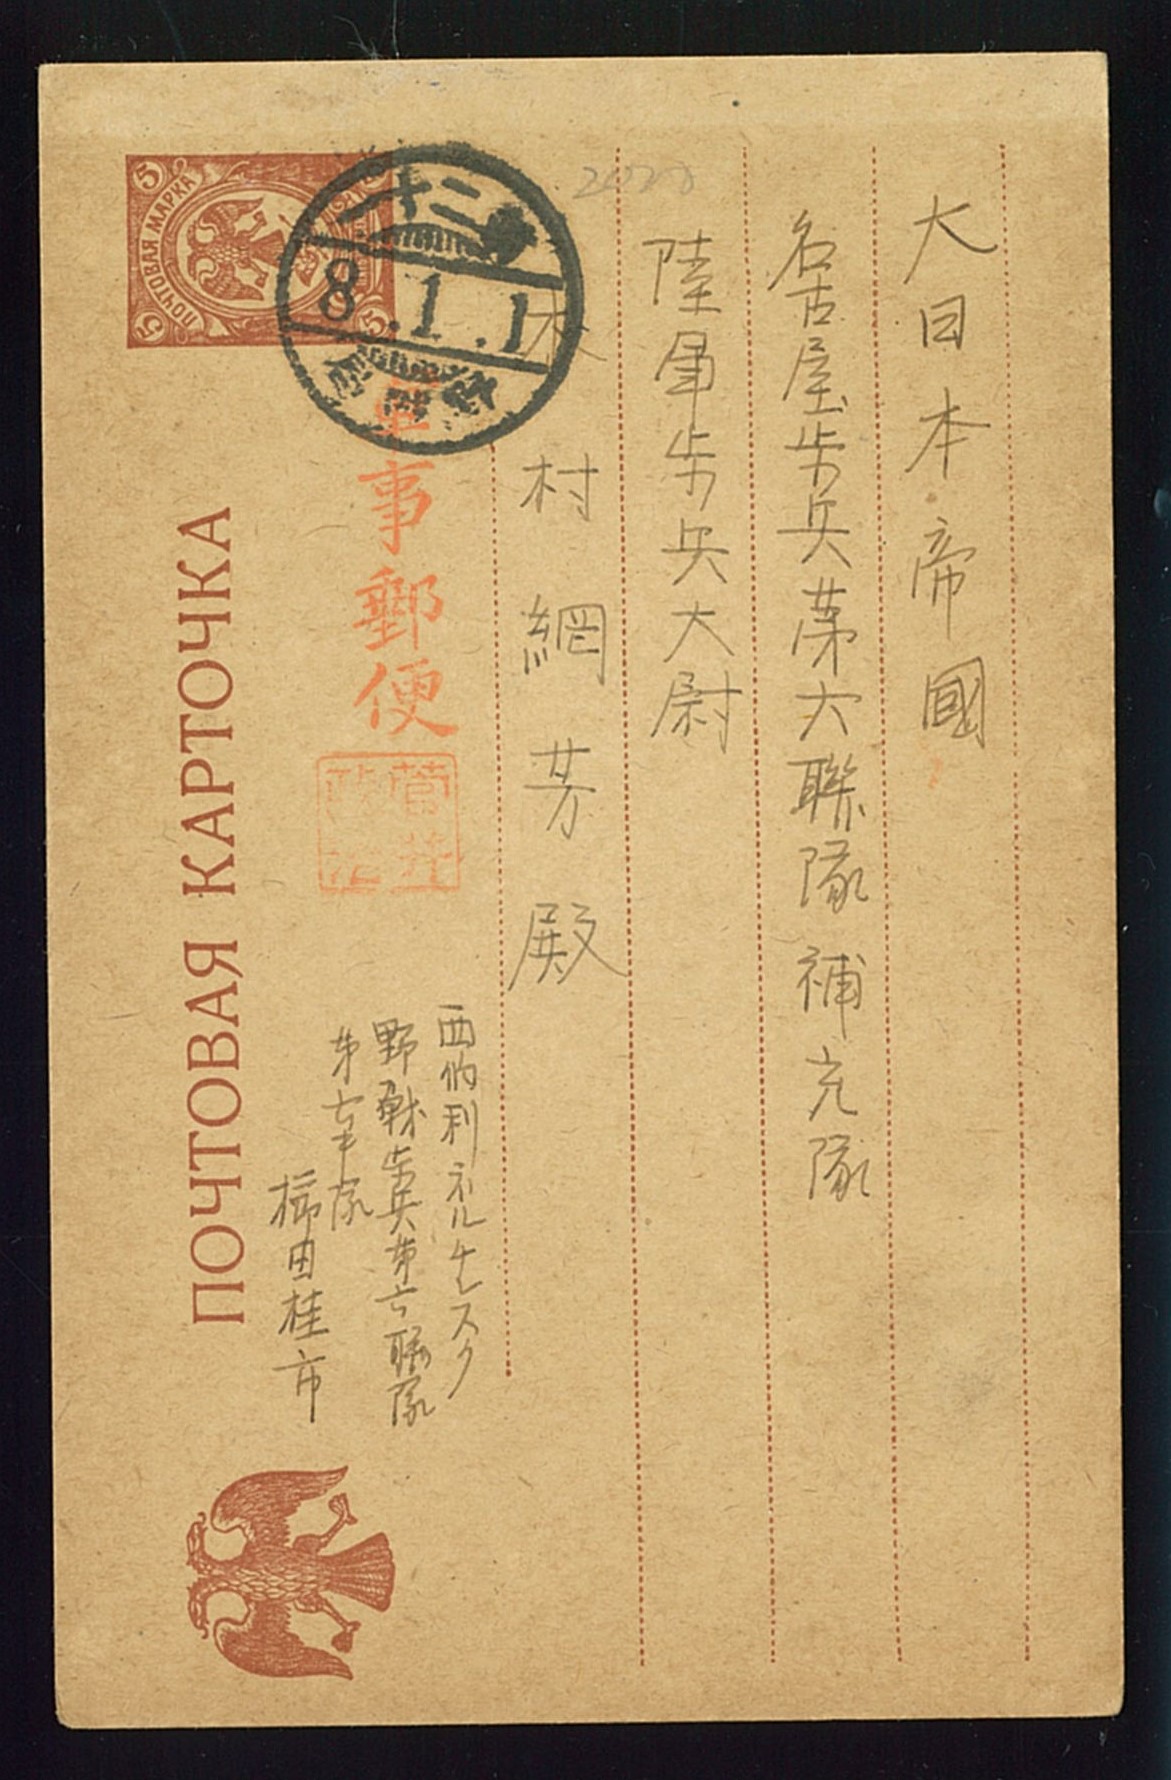 大日本帝國
名古屋歩兵第六聯隊補充隊
陸軍歩兵大尉
木村網芳殿
2020
軍事郵便
菅井
西伯利ネルチンスク
野戰歩兵第六聯隊
第七中隊
櫛田桂市
十二
8.1.1
ПОЧТОВАЯ КАРТОЧКА
ПОЧТОВАЯ МАРКА
5
5
5